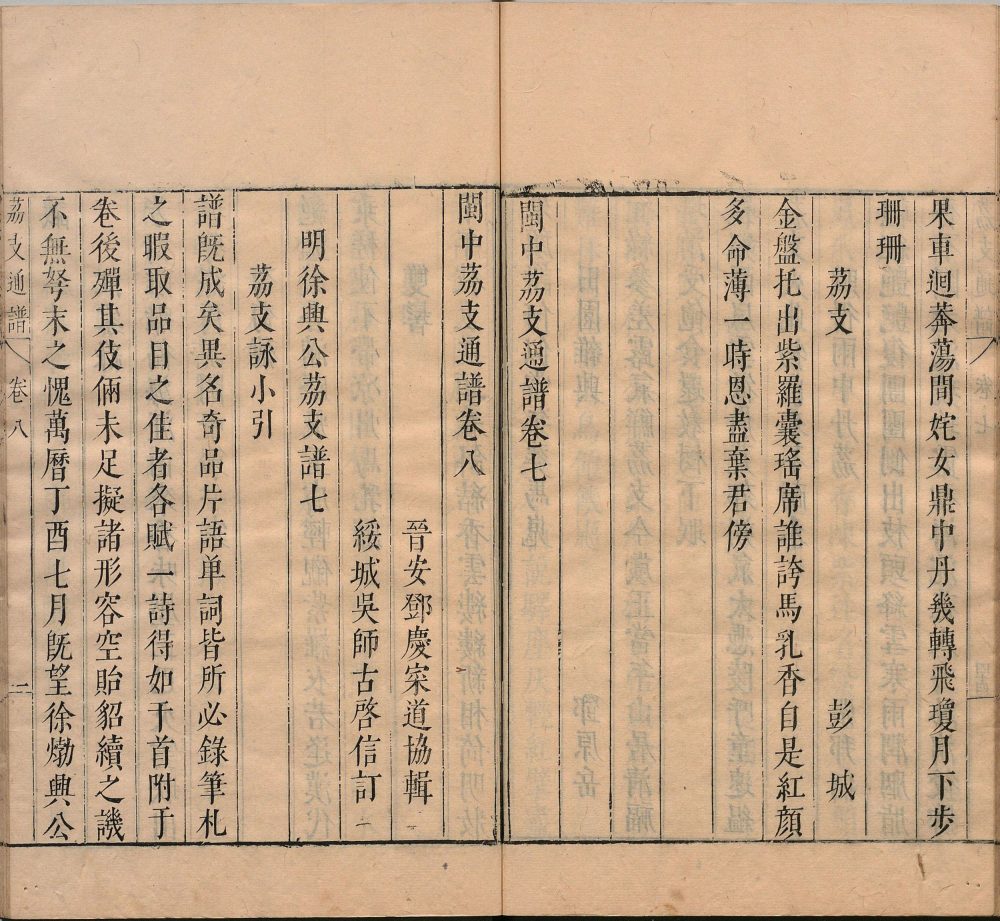 果車迴莾蕩間姹女鼎中丹幾轉飛瓊月下步
珊珊
荔支 彭城
金盤托出紫羅囊瑤席誰誇馬乳香自是紅顏
多命薄一時恩盡棄君傍
閩中荔支通譜卷七
閩中荔支通譜卷八
晉安鄧慶寀道協輯
綏城吳師古啓信訂
明徐興公荔支譜七
荔支詠小引
譜旣成矣異名奇品片語单詞皆所必錄筆札
之暇取品目之佳者各賦一詩得如干首附于
卷後殫其伎倆未足擬諸形容空貽貂續之譏
不無弩末之愧萬曆丁酉七月旣望徐𤊹興公
荔支通譜 卷八 一